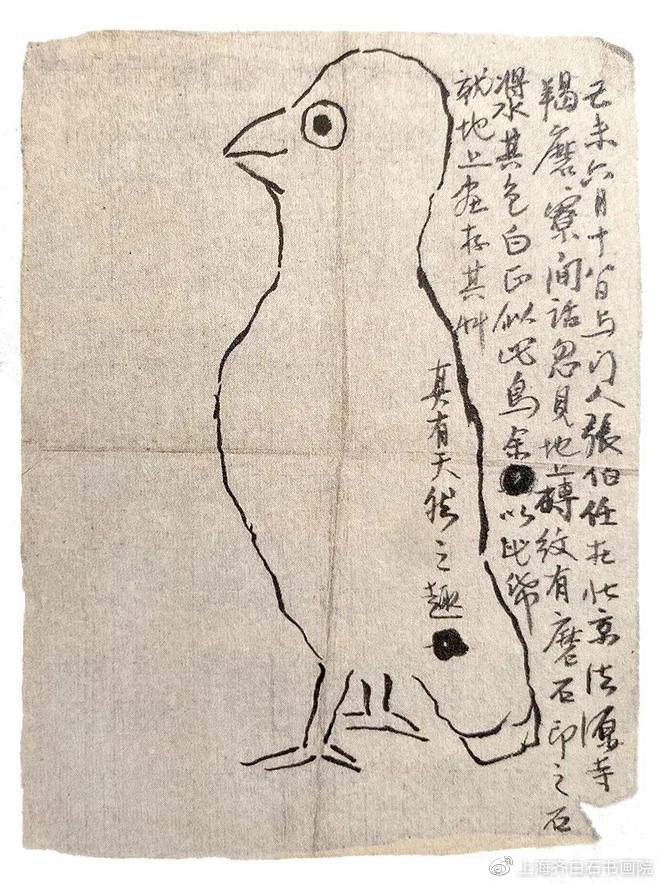 己未六月十八日与门人張伯任在北京法源寺
羯磨寮间話忽見地上磚紋有磨石印之石
漿其色白正似此鳥余以此紙
就地上画存其艸
真有天然之趣
上海齐白石书画院